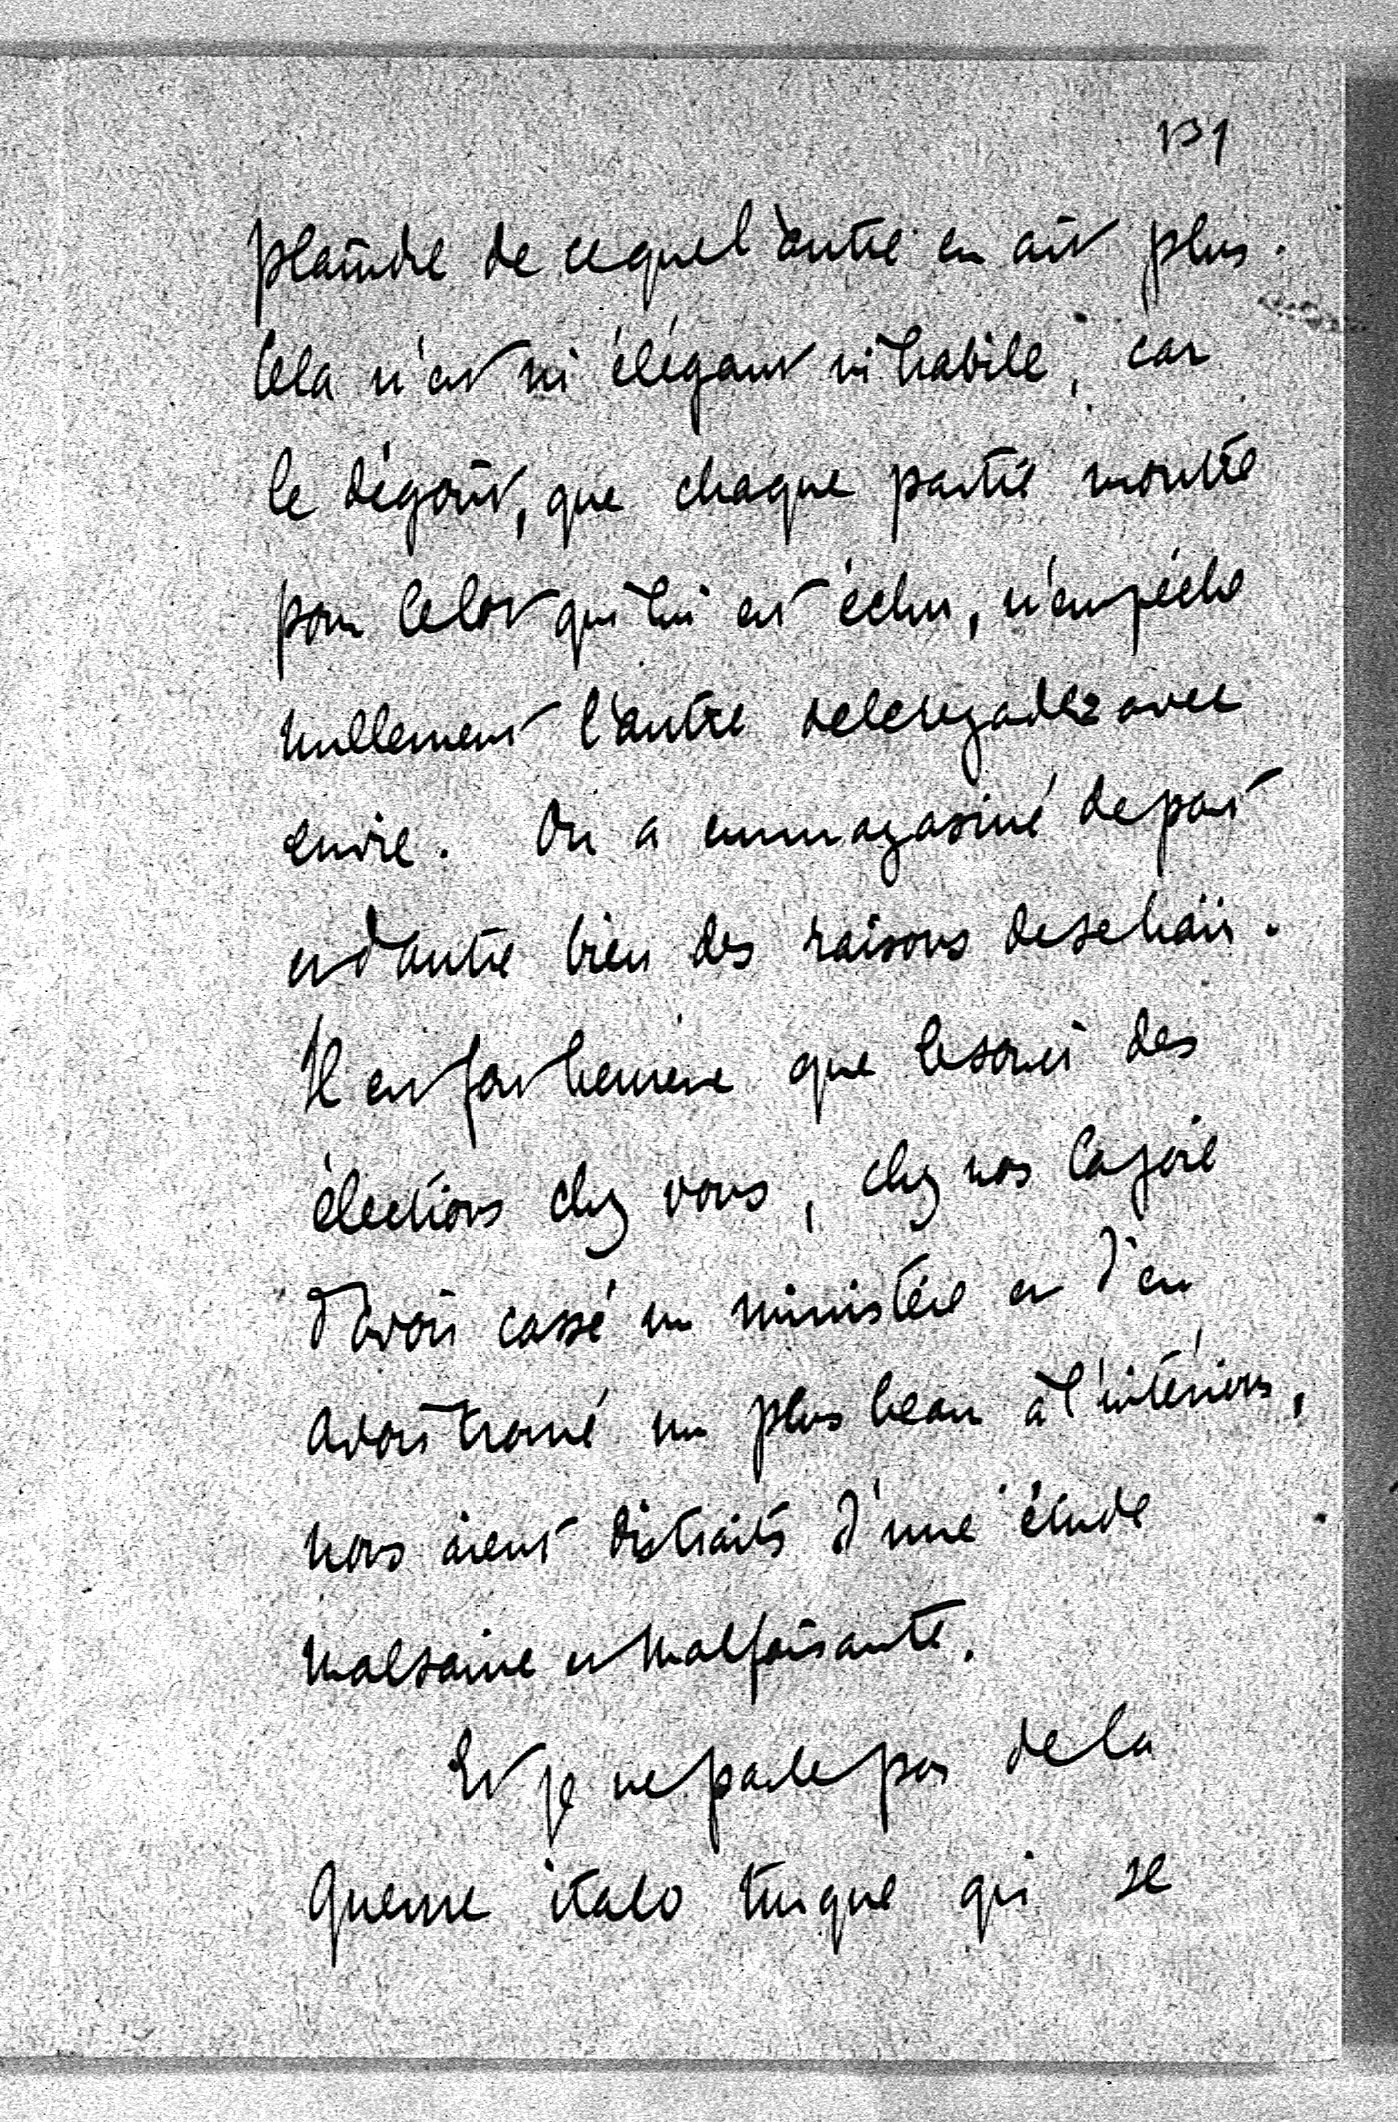 131
plaindre de ce que l'autre en ait plus.
Cela n'est ni élégant ni habile, car
le dégoût, que chaque partie montre
pour le lot qui lui est échu, n'empêche
nullement l'autre de le regarder avec
envie. On a emmagasiné de part
et d'autre bien des raisons de se haïr.
Il est fort heureux que le souci des
élections chez vous, chez nous la joie
d'avoir cassé un ministère et d'en
avoir trouvé un plus beau à l'intérieur,
nous aient distraits d'une étude
malsaine et malfaisante.
Et je ne parle pas de la
guerre italo turque qui se